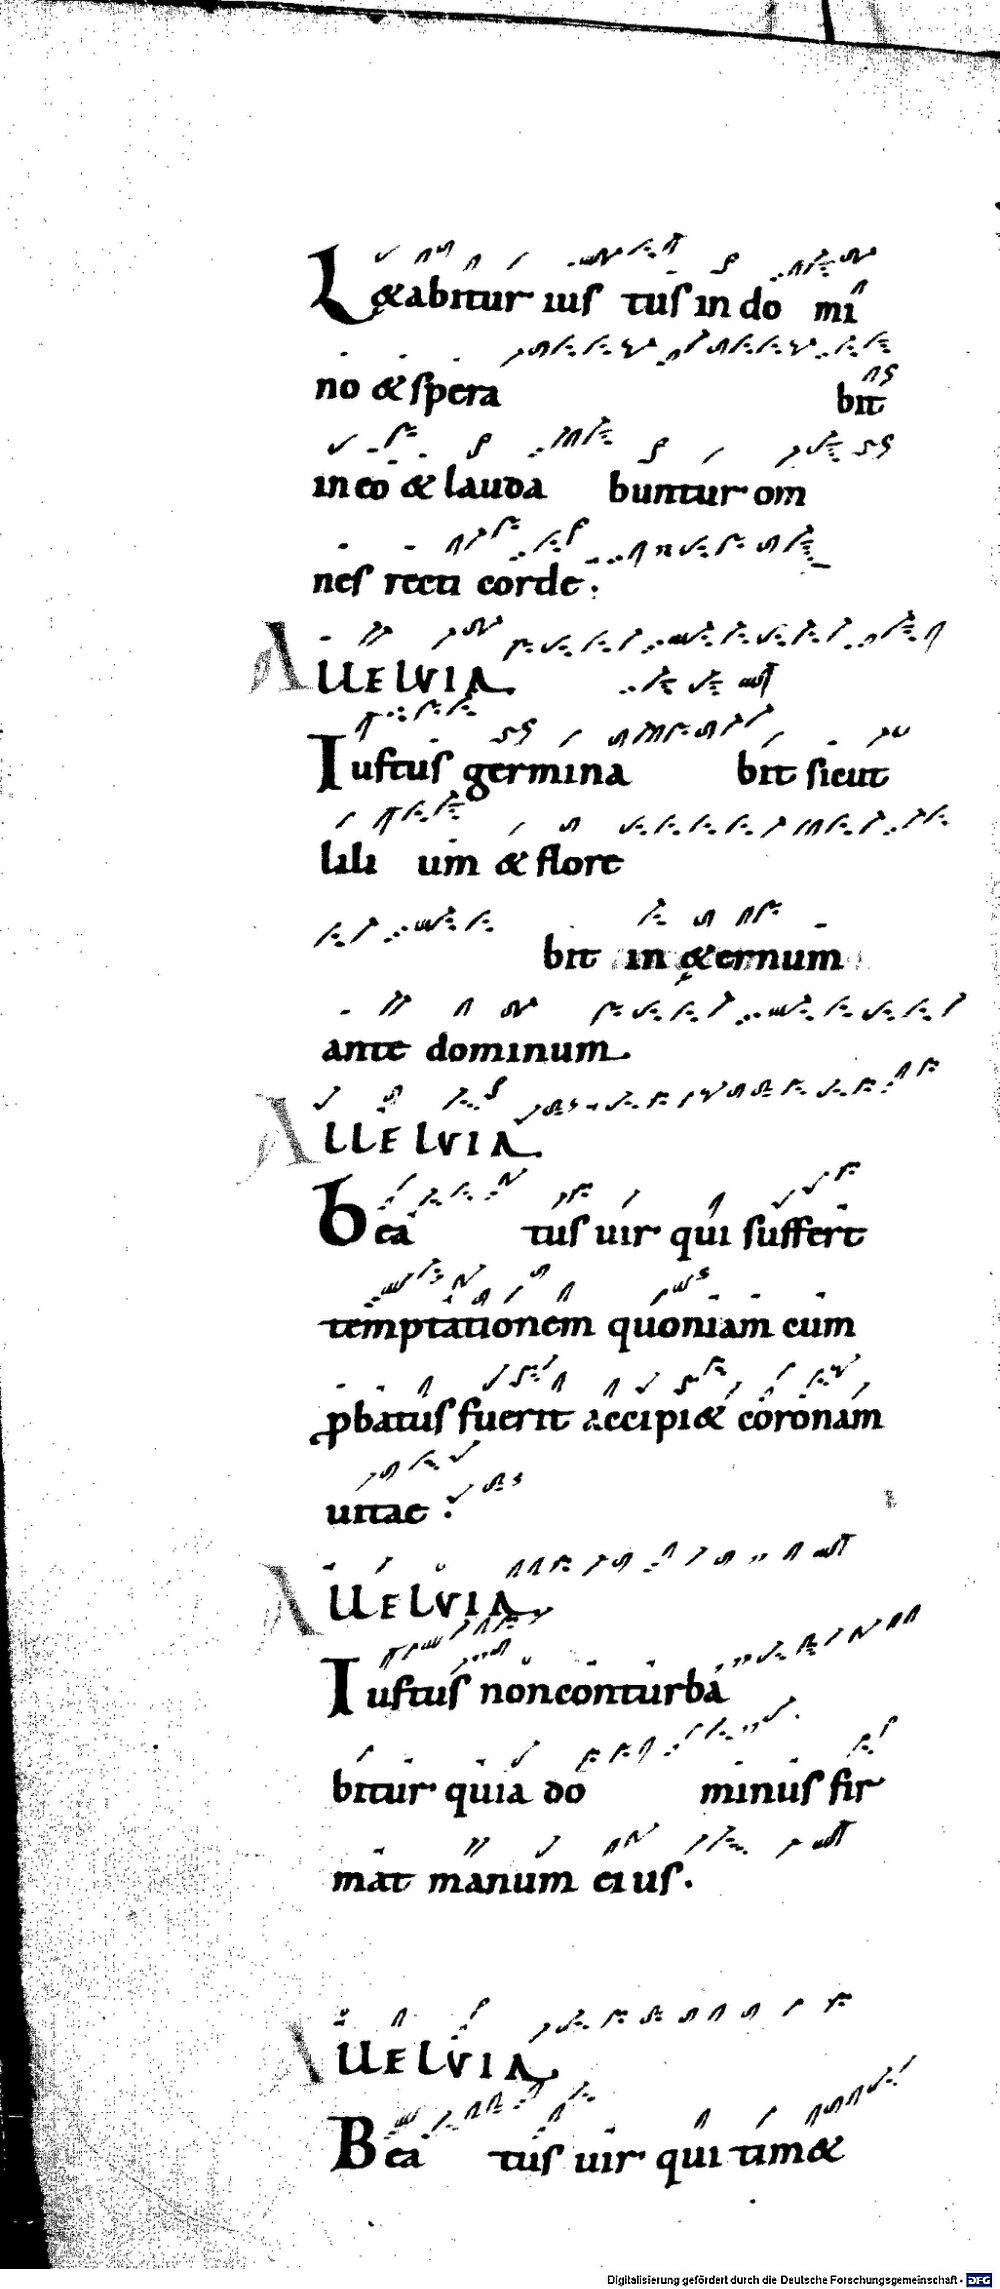 L&abitur ius tus in do mi
no & spera bit
in eo & lauda buntur om
nes recti corde.
ALLELVIA.
Iustus germina bit sicut
lili um & flore
bit in &ernum
ante dominum.
ALLELVIA.
Bea tus uir qui suffert
temptationem quoniam cum
ꝓbatus fuerit accipi& coronam
uitae.
ALLELVIA.
Iustus non conturba
bitur quia do minus fir
mat manum eius.
ALLELVIA.
Bea tus uir qui tim&
Digitalisierung gefördert durch die Deutsche Forschungsgemeinschaft - DFG